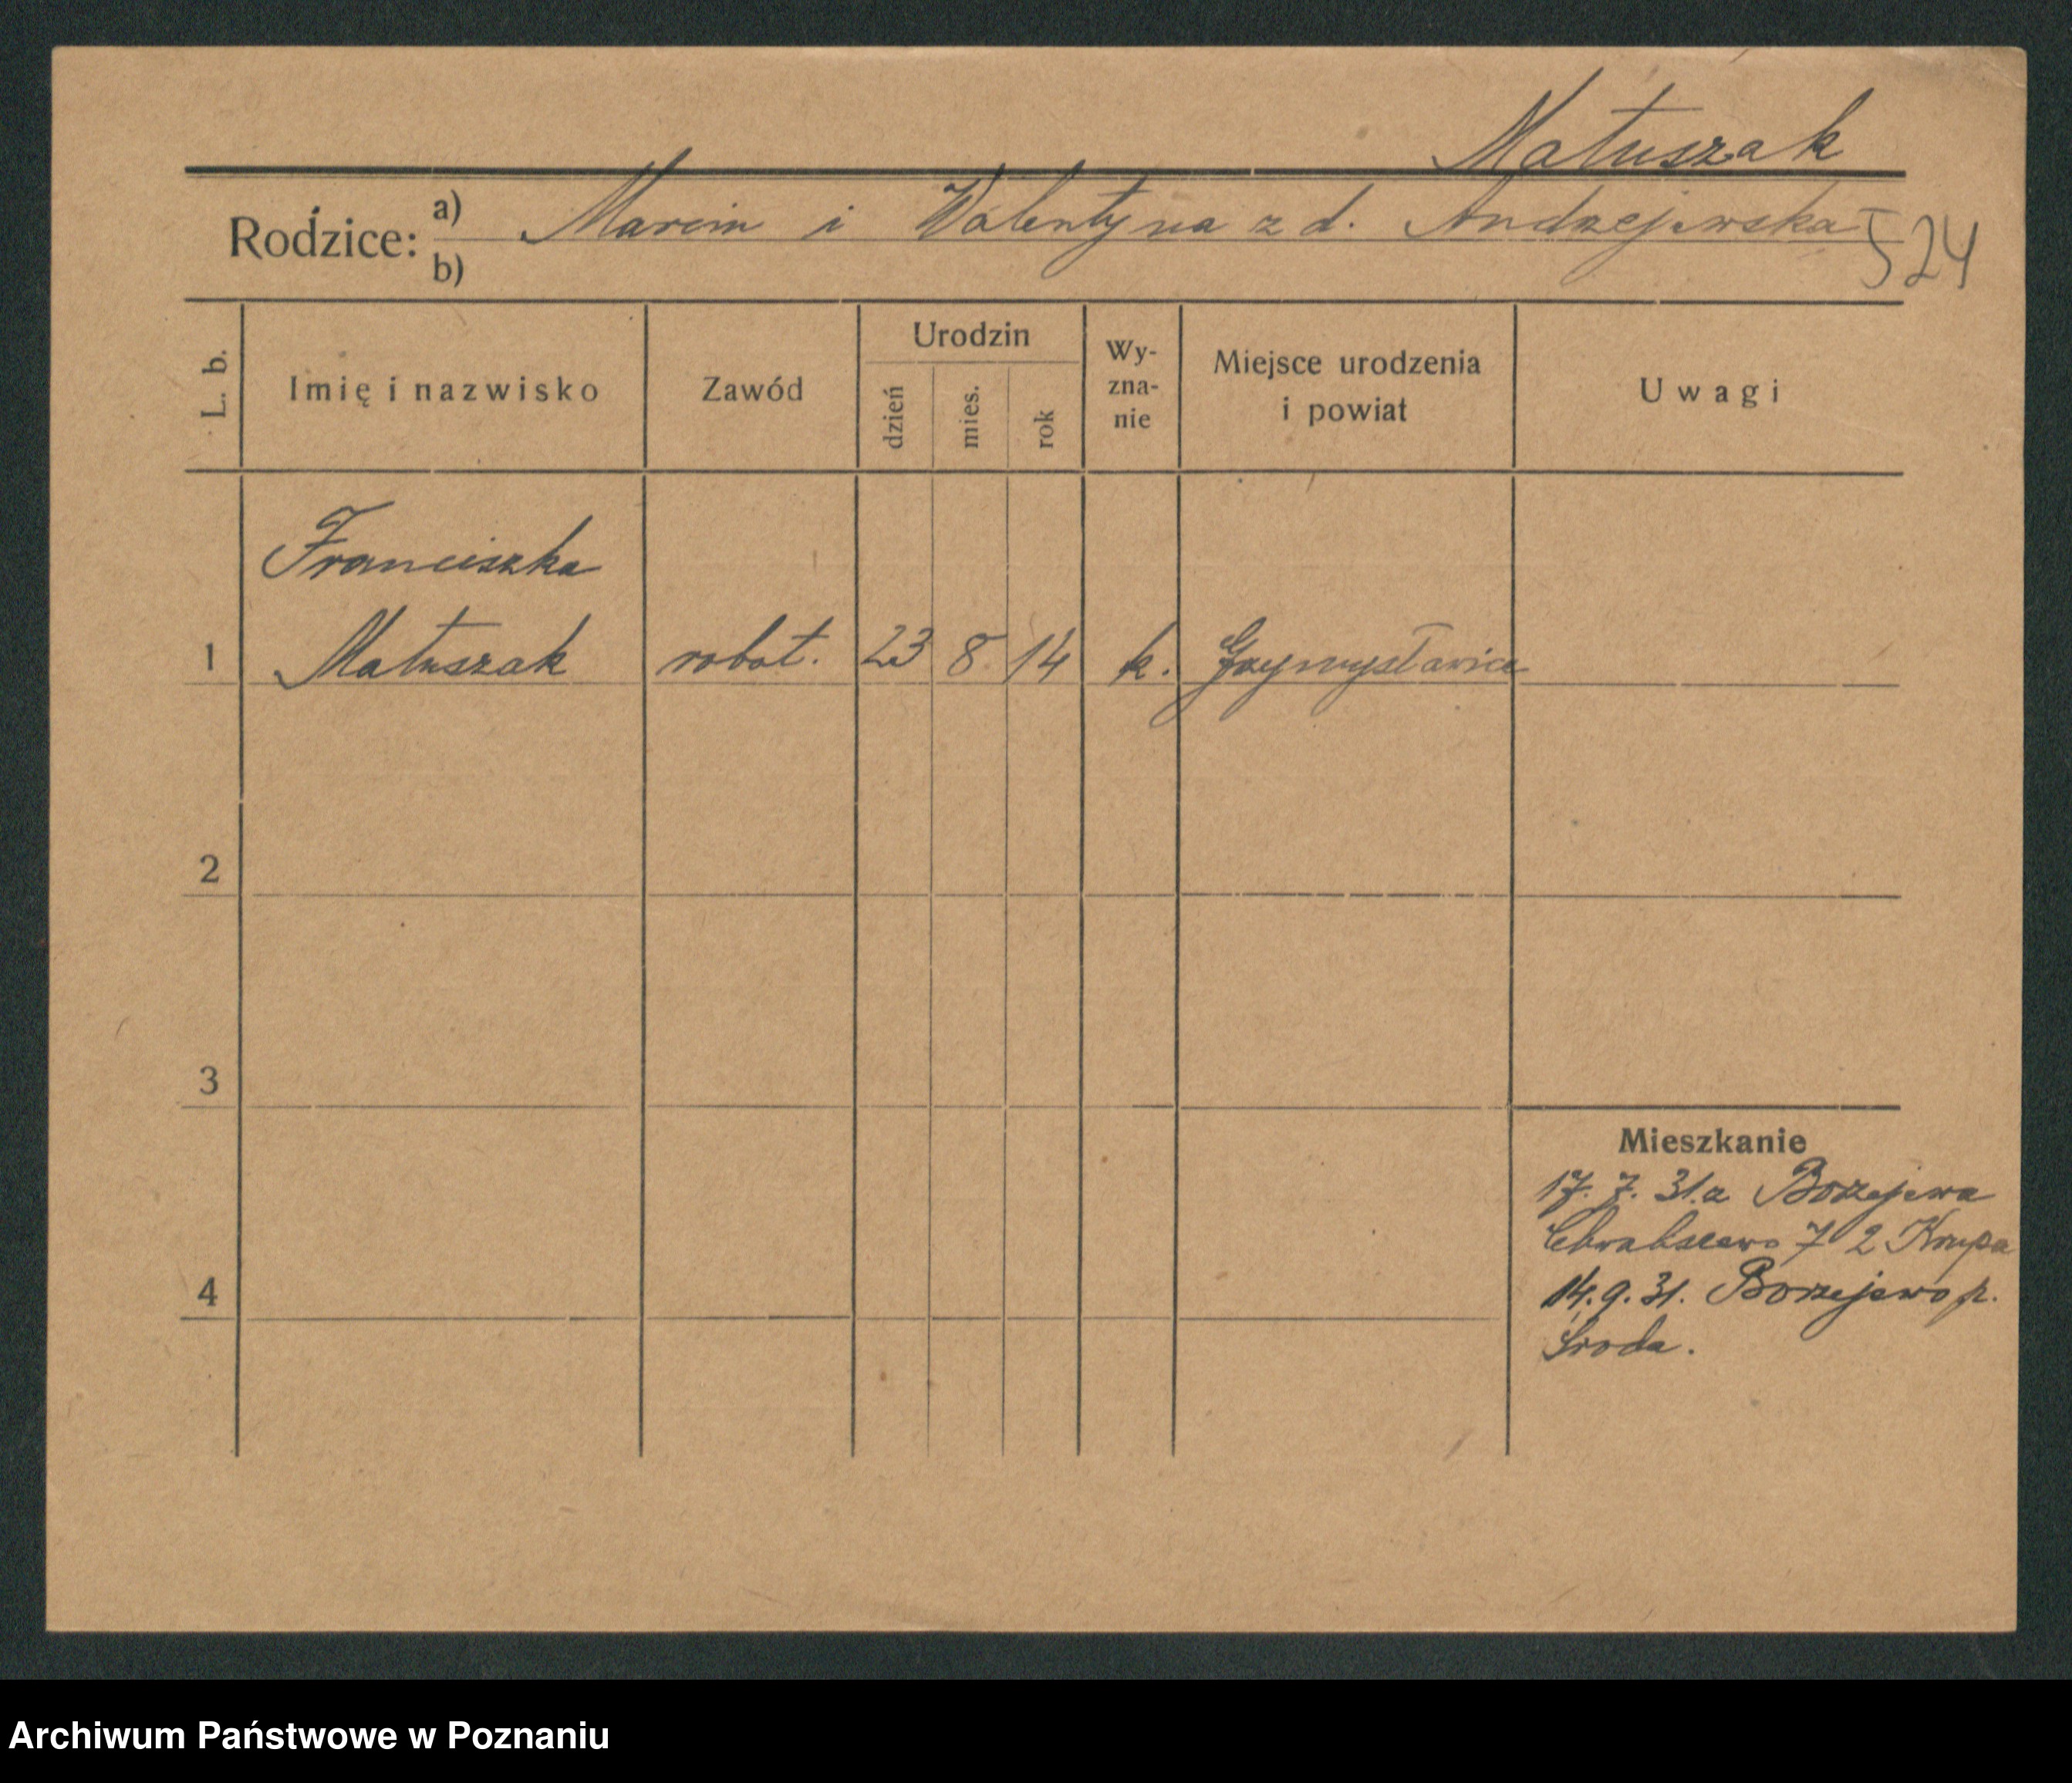 Matuszak
Rodzice: a) Marcin i Walentyna z d. Andrzejewska
b)
524
L. b.
Imię i nazwisko
Zawód
Urodzin
dzień
mies.
rok
Wy-
zna-
nie
Miejsce urodzenia
i powiat
Uwagi
Franciszka
1 Matuszak robot. 23 8 14 k.
2
3
4
Mieszkanie
17. 7. 31. z Borzejewa
7 2 Krupa
14. 9. 31. Borzejewo p.
Środa.
Archiwum Państwowe w Poznaniu